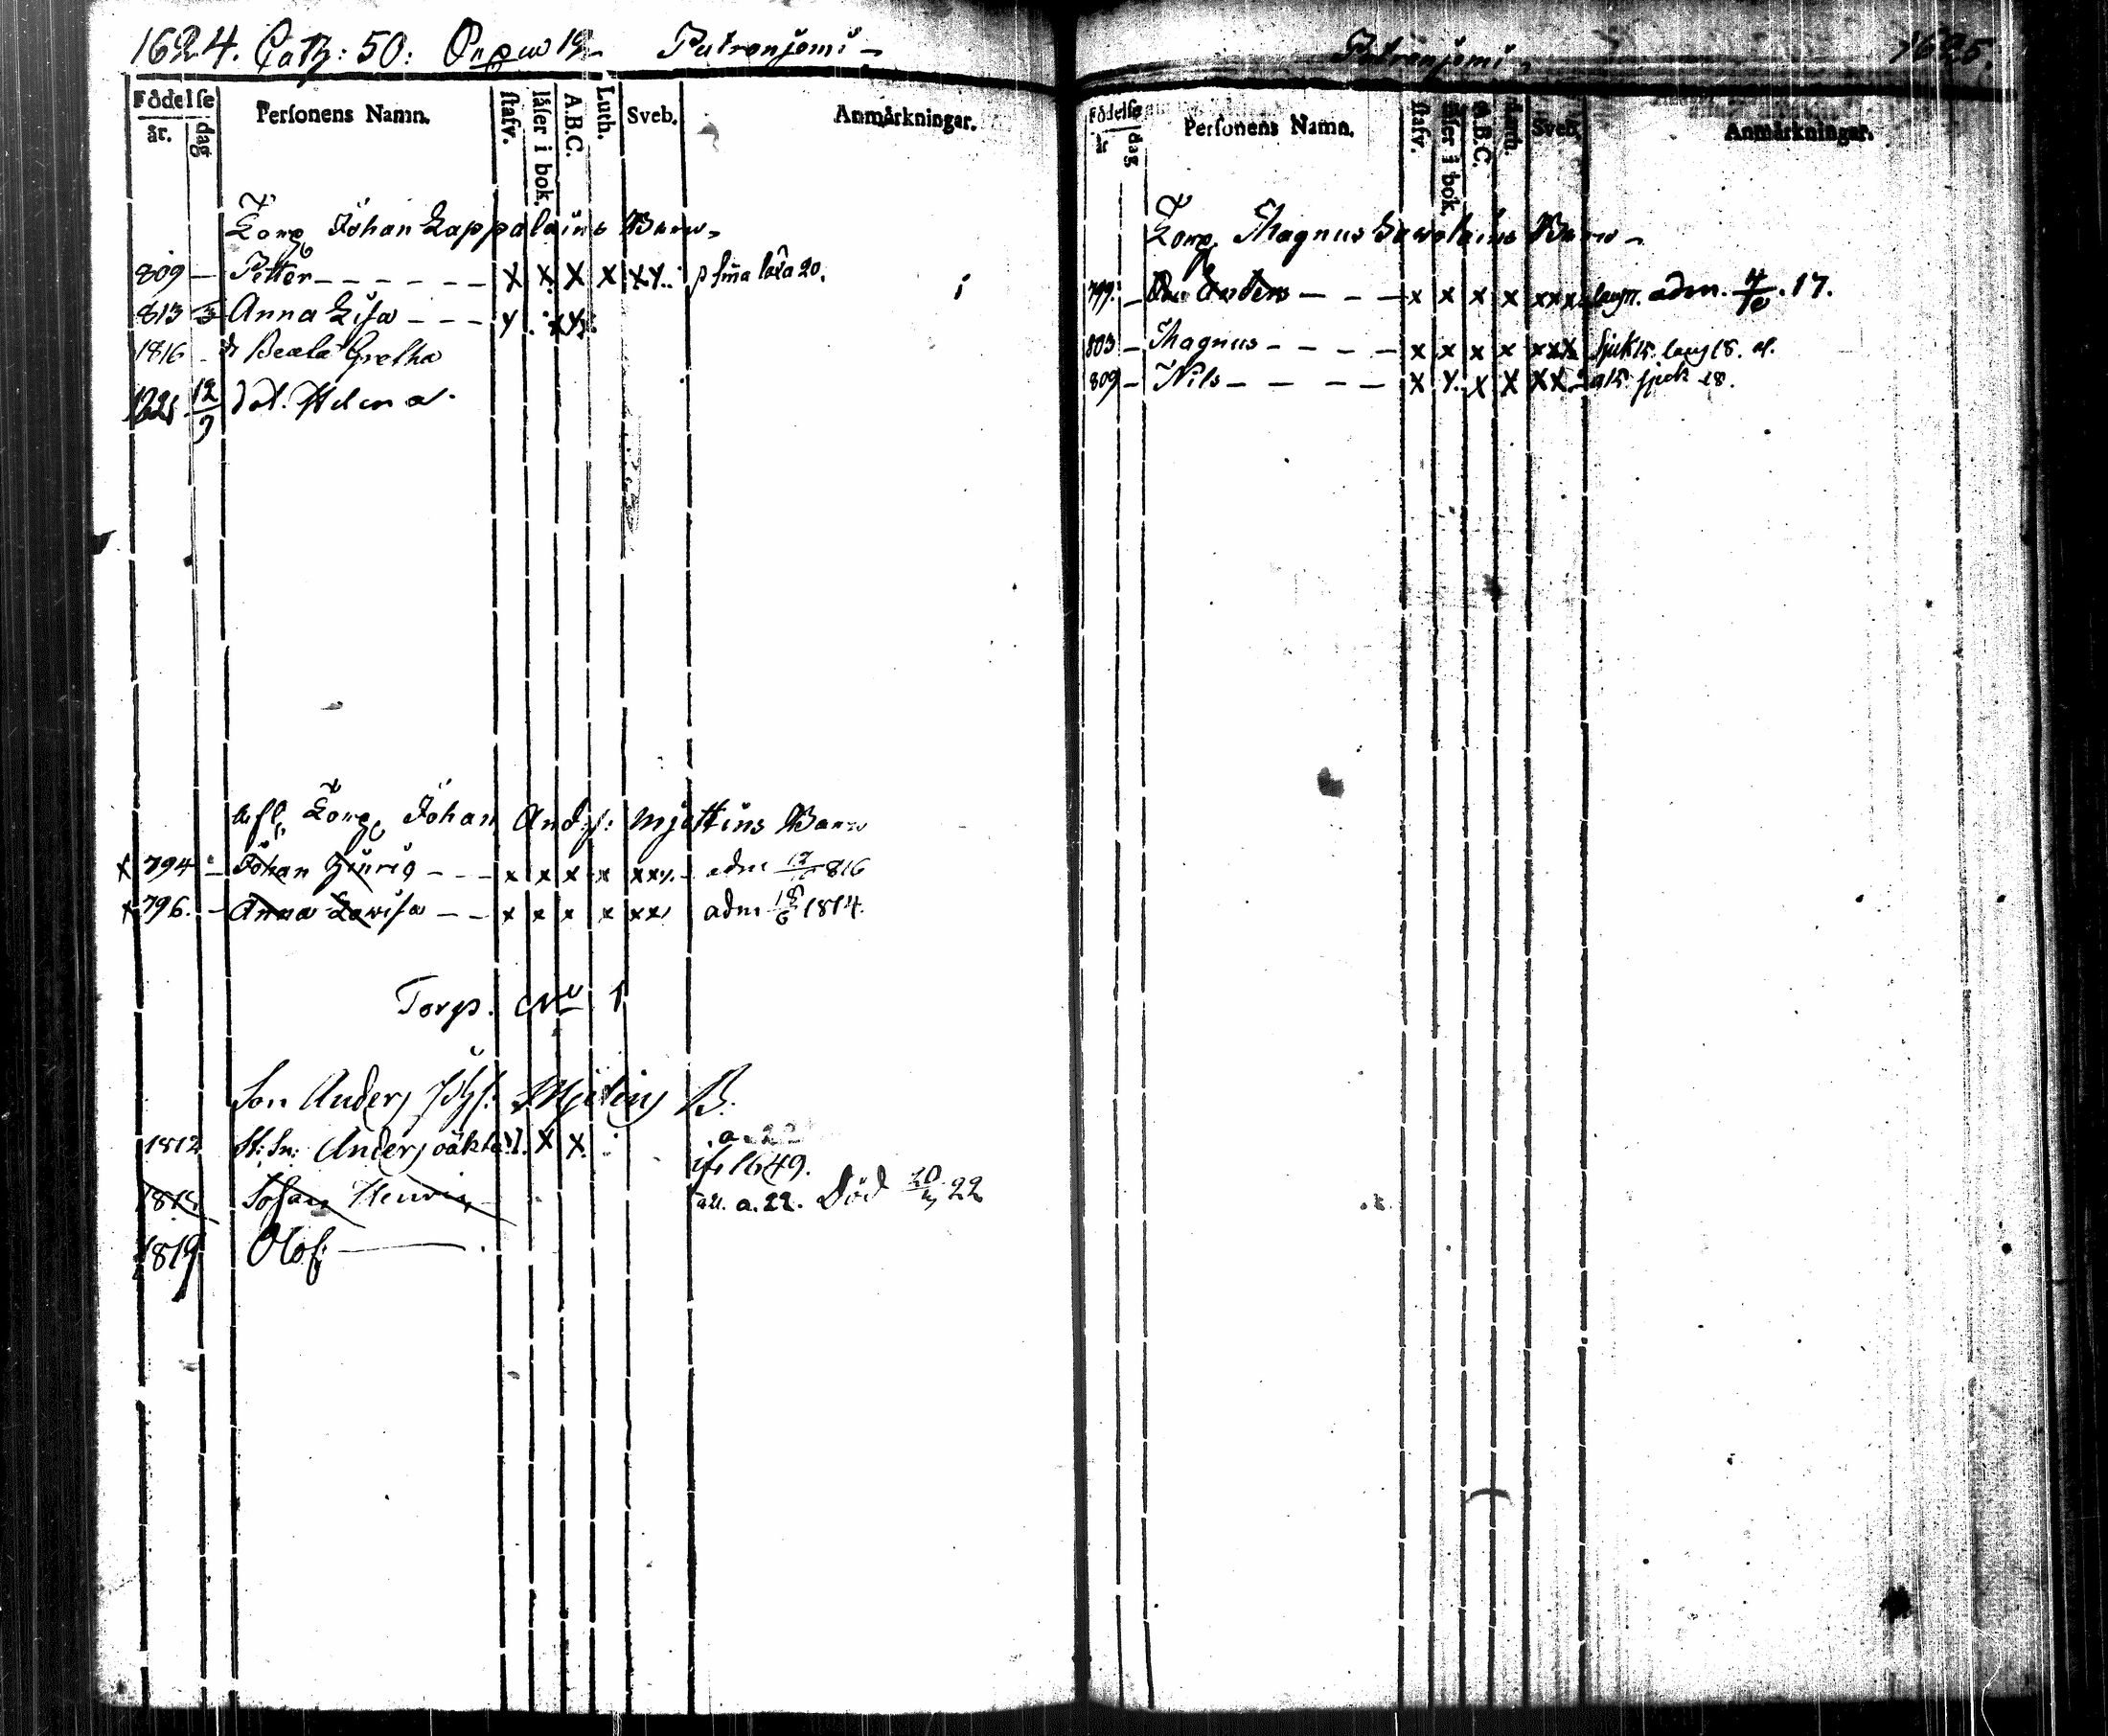 1624. Cath: 50: Putronjemi
Födelse
år. dag
Personens Namn.
stafv.
läser i bok.
A.B.C.
Luth.
Sveb.
Anmärkningar.
Torp Johan Lappalains Barn
809 — Petter — — — — — x x x x x x. 20.
813 Anna Lisa — — —
1816 dr Beata Gretha
12/9 dot. Helena.
Torp Johan And:s: Mjöttins Barn
x 794 — Johan Hinric — — — x x x x x x x. adm 816
x 796. — Anna Lovisa — — x x x x x x x adm 18/6 1814.
Torp. No 1
Son Anders Joh:s: B.
1812 Anders oäkta x x a. 22
1649.
Johan Henric a. 22. Död 22
1819 Olof —
Putronjemi 1625.
Födelse
år dag
Personens Namn.
stafv.
läser i bok.
A.B.C.
Luth.
Sveb.
Anmärkningar.
Torp. Magnus Barn —
799. — Anders — — — x x x x x x x adm. 4/10. 17.
803 — Magnus — — — — x x x x x x x sjuk 15. 18.
809 — Nils — — — — x x. x x x x a 15. sjuk 18.